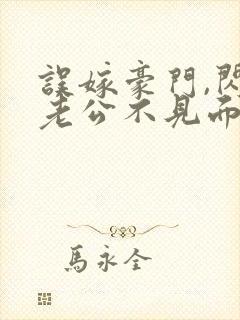 誤嫁豪門,閃
老公不見而
馬永全